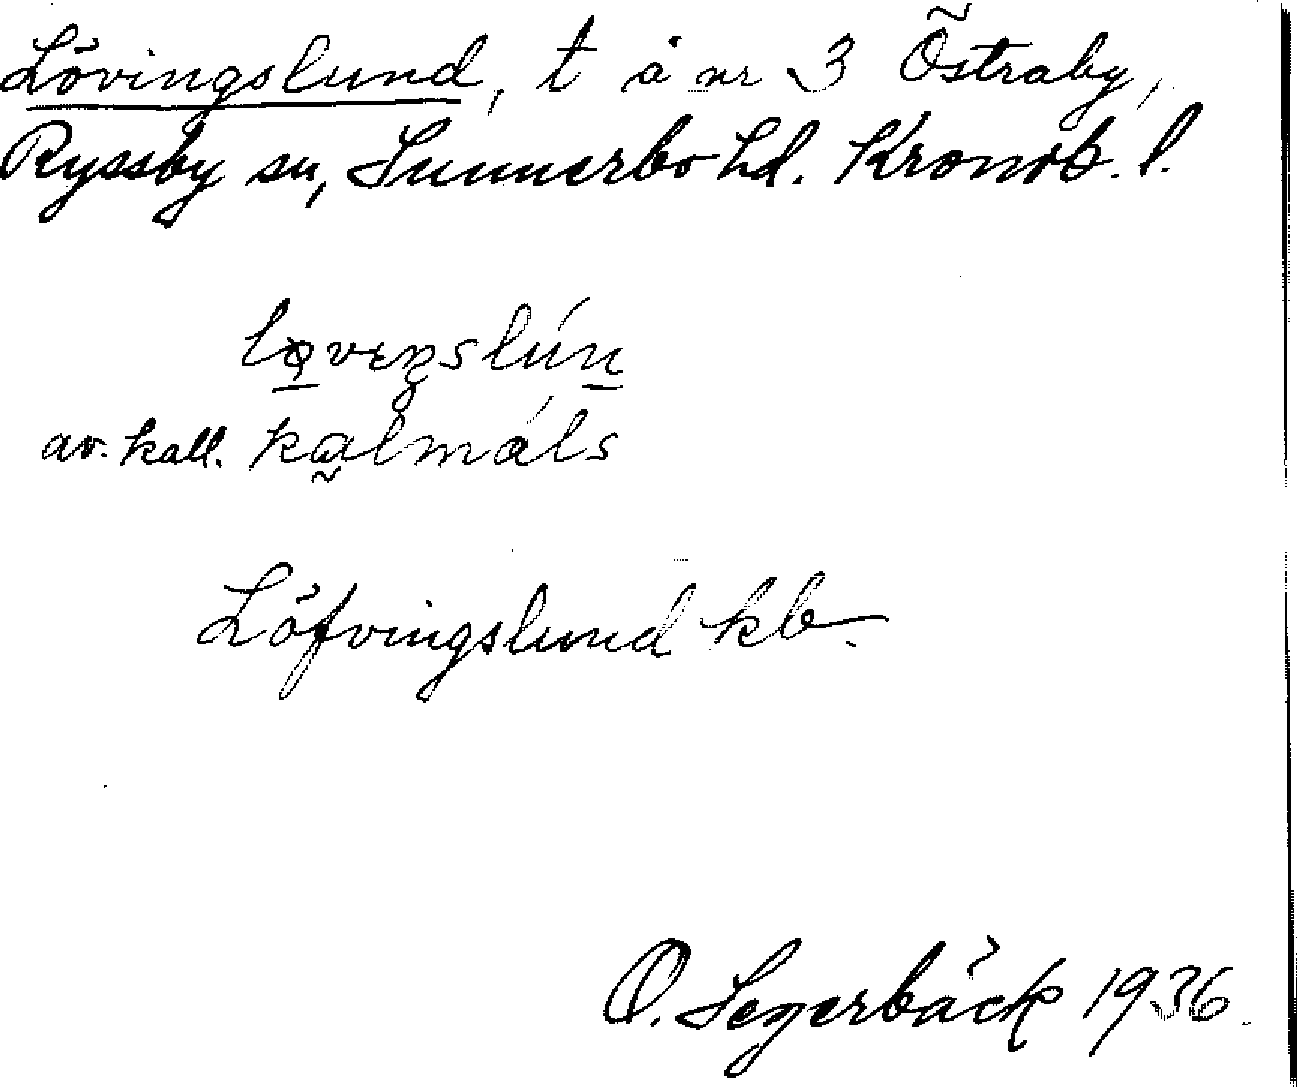 Lövingslund, t å nr 3 Östraby,
Ryssby sn, Sunnerbo hd. Kronob. l.
lø̱vɛŋslún̠
av. kall. ka̰lmáls
Löfvingslund kb.
O. Segerbäck 1936.